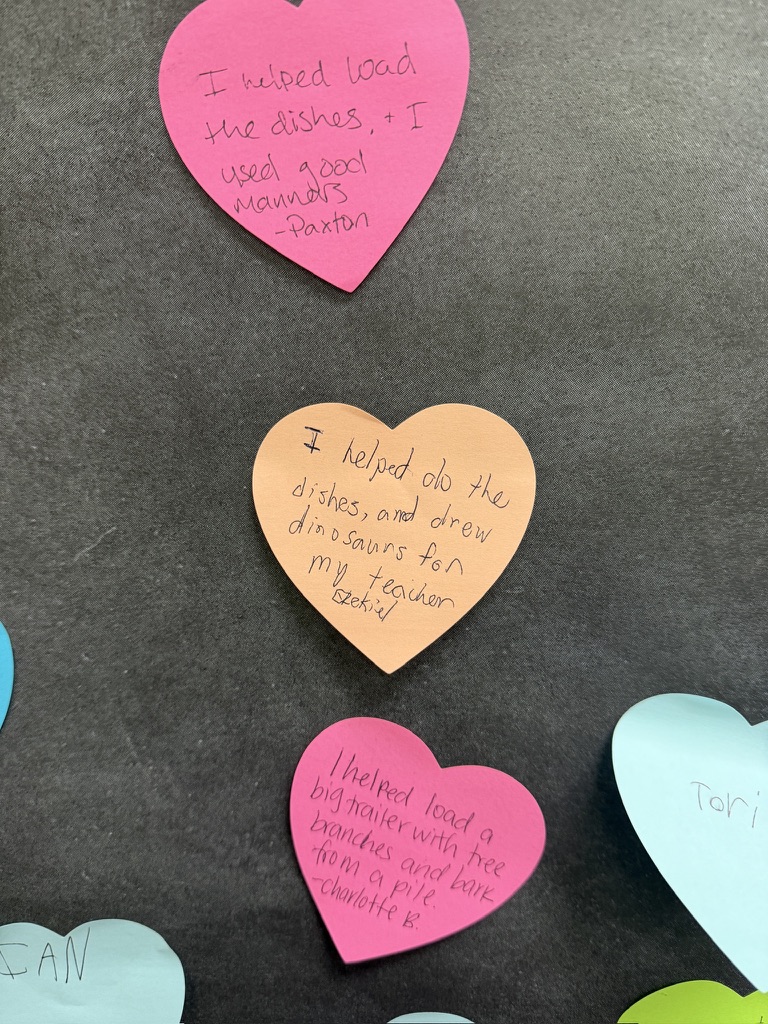 I helped load
the dishes, + I
used good
manners
-Paxton
I helped do the
dishes, and drew
dinosaurs for
my teacher
Ezekiel
I helped load a
big trailer with tree
branches and bark
from a pile.
-charlotte B.
Tori
IAN